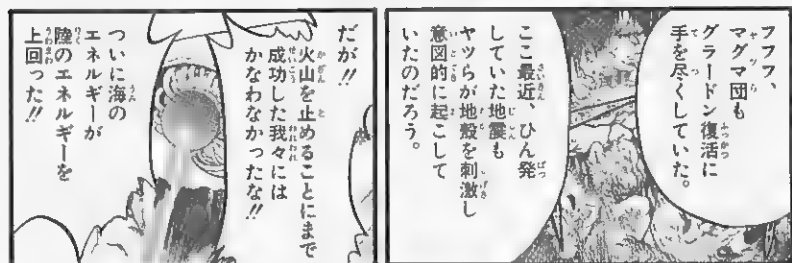 フフフ、
マグマ団も
グラードン復活に
手を尽くしていた。
ここ最近、ひん発
していた地震も
ヤツらが地殻を刺激し
意図的に起こして
いたのだろう。
だが!!
火山を止めることにまで
成功した我々には
かなわなかったな!!
ついに海の
エネルギーが
陸のエネルギーを
上回った!!